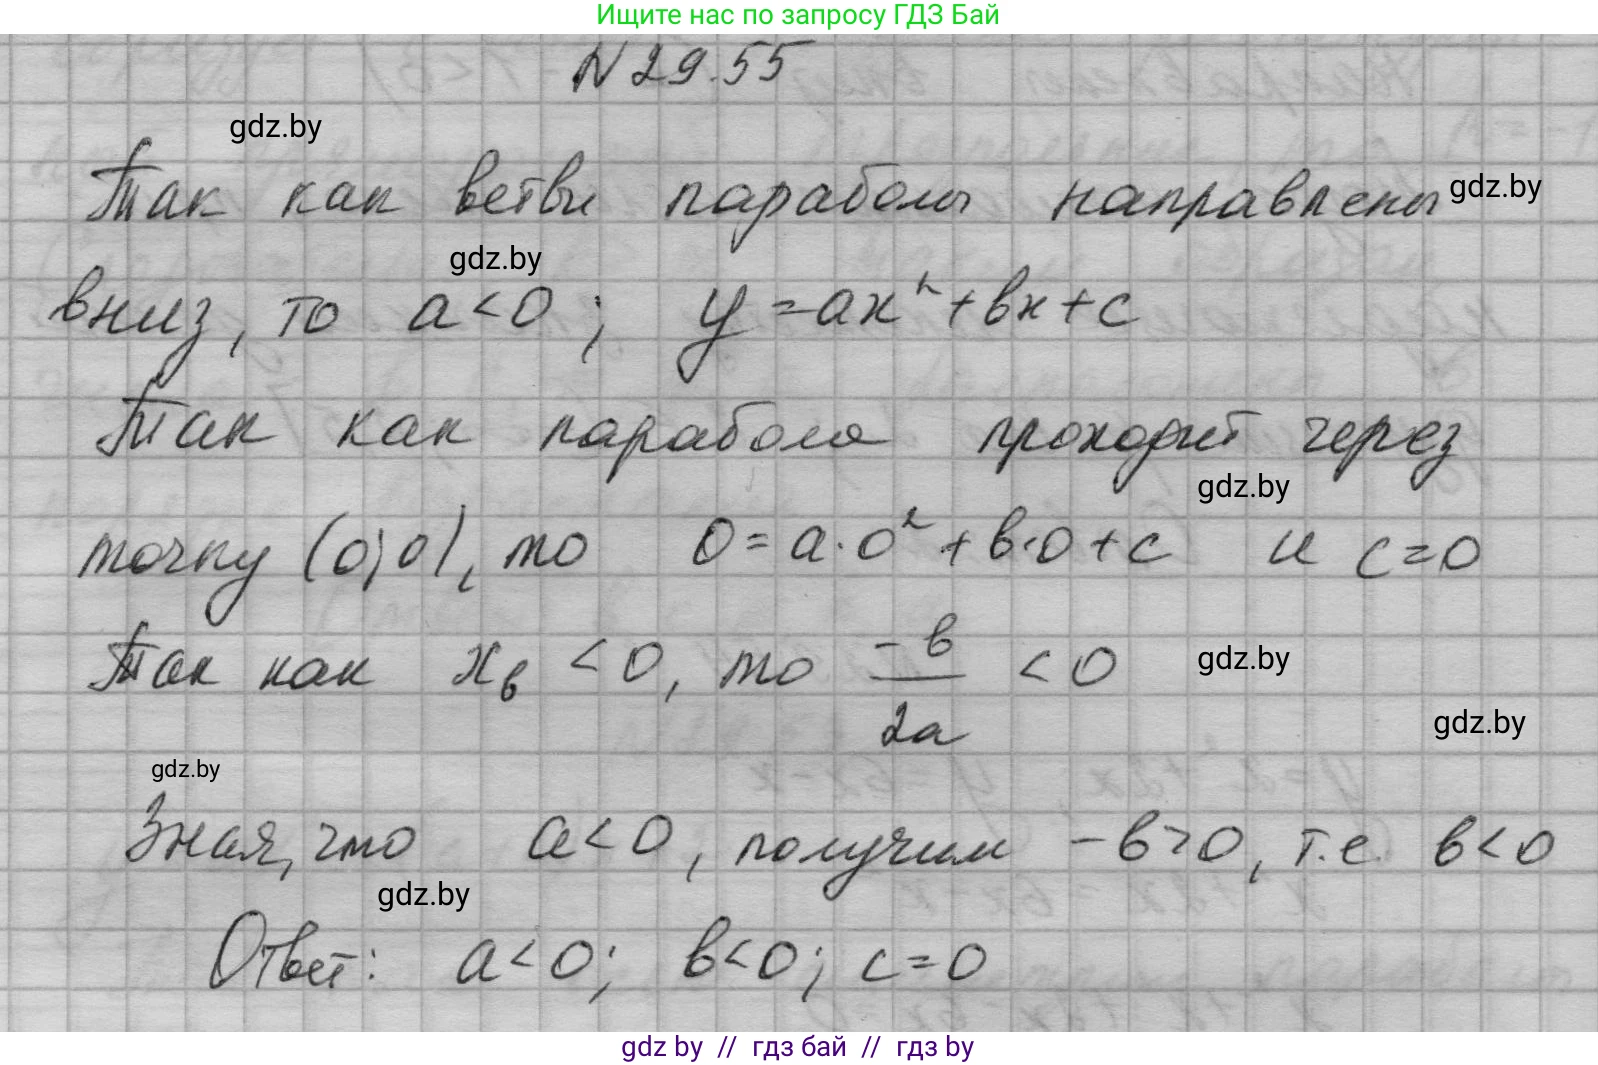 Ищите нас по запросу ГДЗ Бай
N 29.55
gdz.by
Так как ветви параболы направлены gdz.by
gdz.by
вниз, то a<0; y=ax²+bx+c
Так как парабола проходит через
gdz.by
точку (0;0), то 0=a·0²+b·0+c и c=0
Так как xв <0, то -b/2a <0 gdz.by
gdz.by
gdz.by
Зная, что a<0, получим -b>0, т.е. b<0
gdz.by
Ответ: a<0; b<0; c=0
gdz by // гдз бай // гдз by